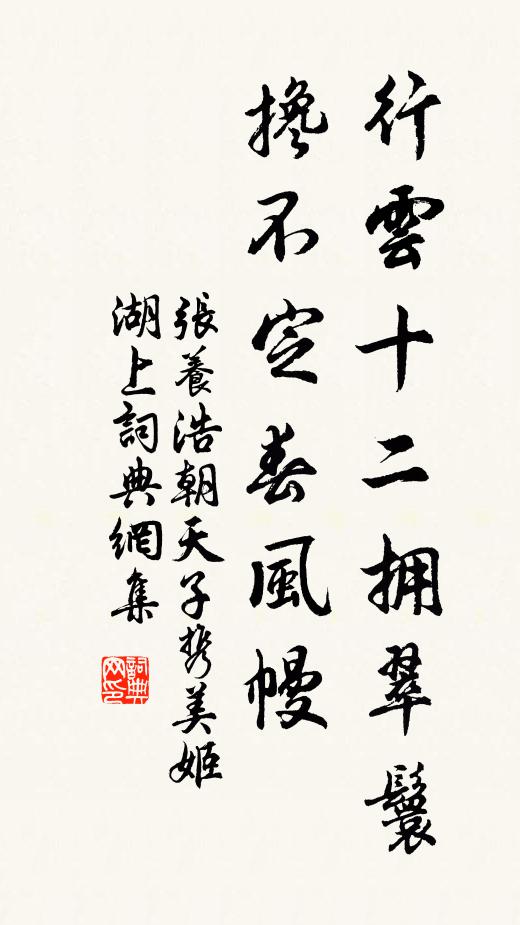 行雲十二拥翠鬟
搀不定春風幔
張養浩朝天子携美姬
湖上詞典網集
詞典
网印